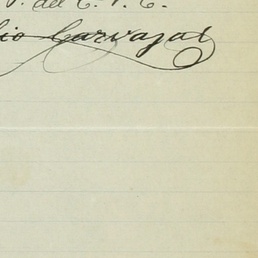 del C. P. C.
io Carvajal